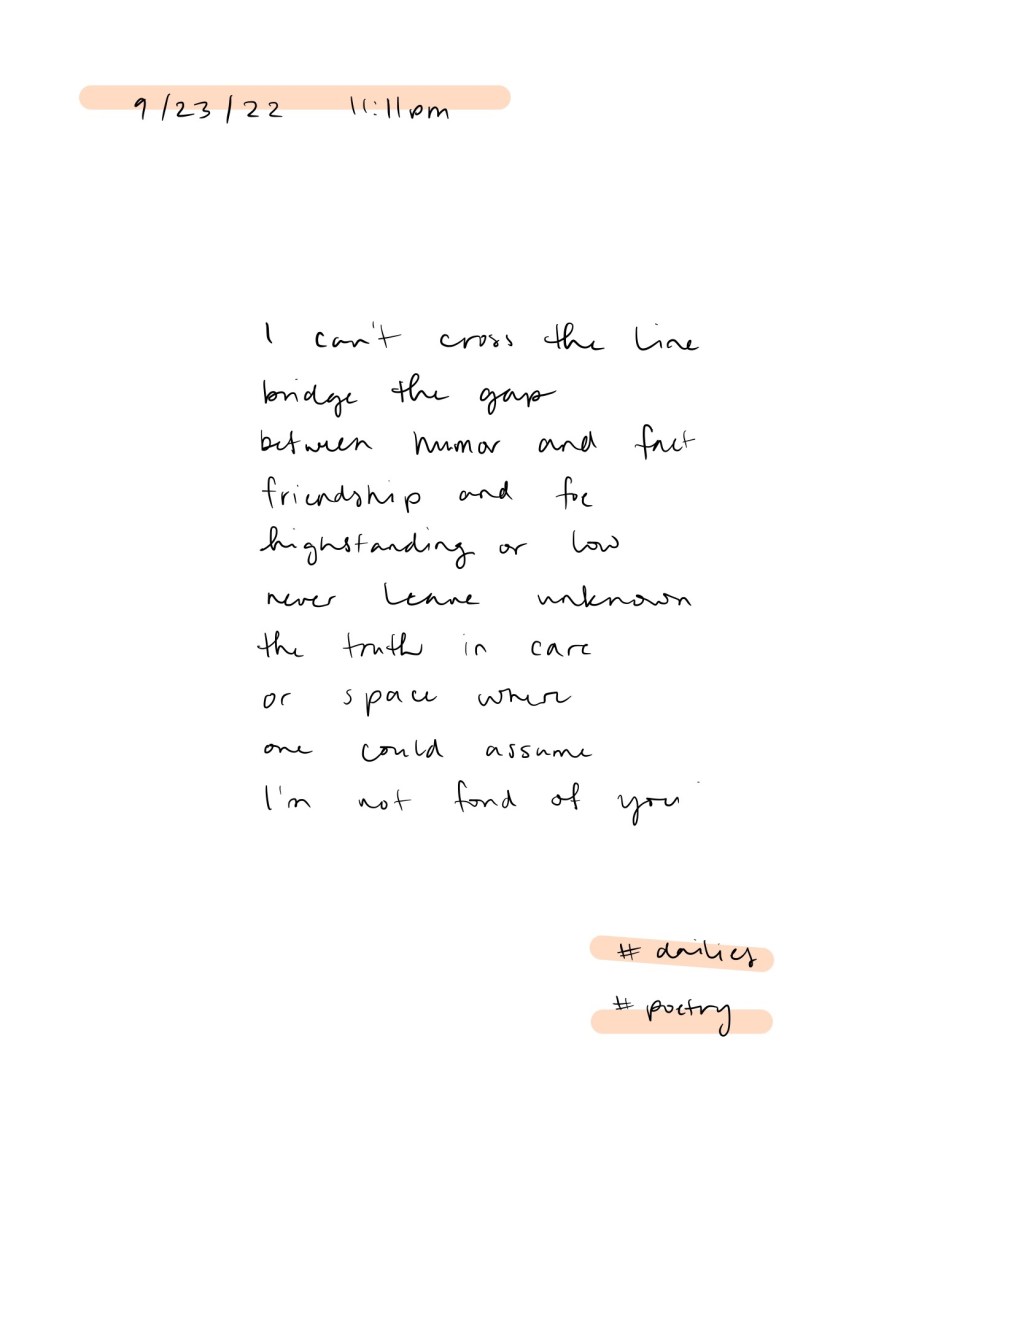 9/23/22 11:11pm
I can't cross the line
bridge the gap
between humor and fact
friendship and foe
highstanding or low
never leave unknown
the truth in care
or space where
one could assume
I'm not fond of you
# dailies
# poetry